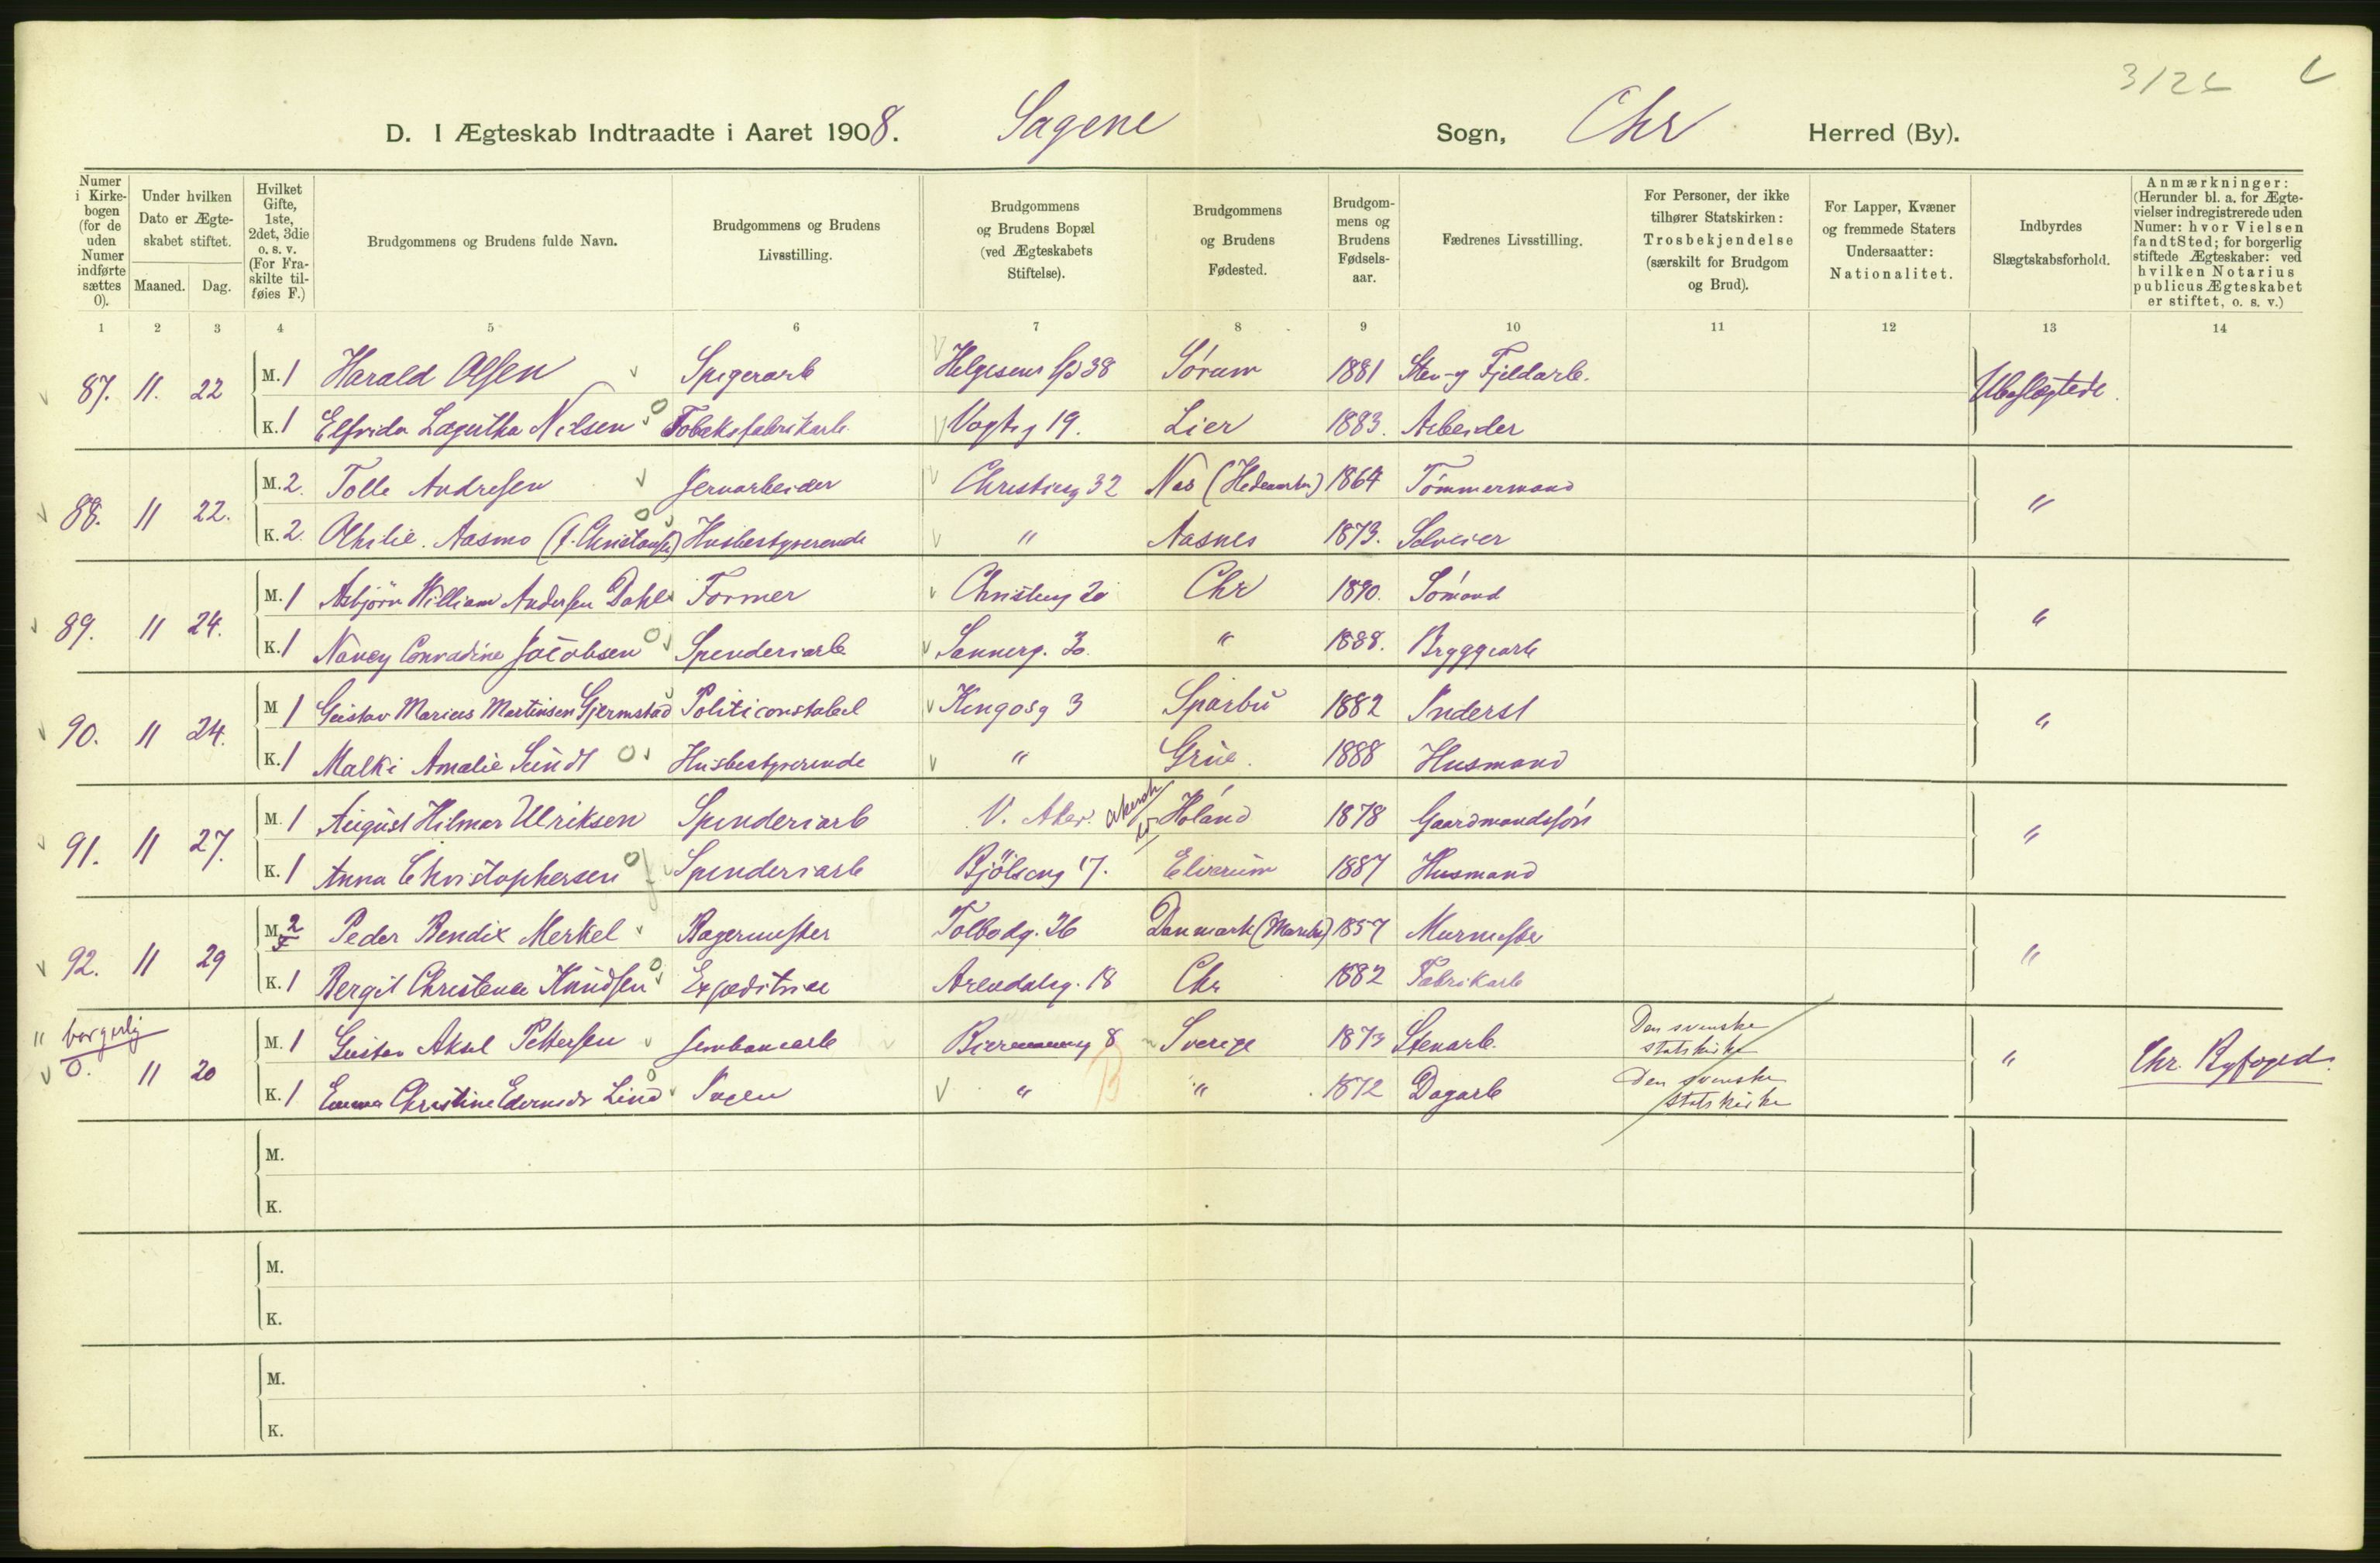 3126
D. I Ægteskab Indtraadte i Aaret 1908. Sagene Sogn, Chr Herred (By).
Numer i Kirkebogen (for de uden Numer indførte sættes 0).
Under hvilken Dato er Ægteskabet stiftet.
Maaned. Dag.
Hvilket Gifte, 1ste, 2det, 3die o. s. v. (For Fraskilte tilføies F.)
Brudgommens og Brudens fulde Navn.
Brudgommens og Brudens Livsstilling.
Brudgommens og Brudens Bopæl (ved Ægteskabets Stiftelse).
Brudgommens og Brudens Fødested.
Brudgommens og Brudens Fødselsaar.
Fædrenes Livsstilling.
For Personer, der ikke tilhører Statskirken: Trosbekjendelse (særskilt for Brudgom og Brud).
For Lapper, Kvæner og fremmede Staters Undersaatter: Nationalitet.
Indbyrdes Slægtskabsforhold.
Anmærkninger: (Herunder bl. a. for Ægtevielser indregistrerede uden Numer: hvor Vielsen fandt Sted; for borgerlig stiftede Ægteskaber: ved hvilken Notarius publicus Ægteskabet er stiftet, o. s. v.)
1 2 3 4 5 6 7 8 9 10 11 12 13 14
87. 11. 22 M. 1 Harald Olsen Spigerarb Helgesens Gd 38 Sórum 1881 Sten- og Fjeldarb. Ubeslægtede
K. 1 Elfrida Lagertha Nilsen Tobaksfabrikarb. Vogtsg 19. Lier 1883. Arbeider
88. 11 22. M. 2. Tolle Andresen Jernarbeider Christiesg 32 Nes (Hedemarken) 1864 Tómmermand "
K. 2. Othilie Aasmo (f. Christensen) Husbestyrerende " Aasnes 1873. Selveier
89. 11 24. M. 1 Asbjörn William Andersen Dahl Former Christiesg 20 Chr 1890. Sómand "
K. 1 Nancy Conradine Jacobsen Spinderiarb Sannerg. 3. " 1888. Bryggearb
90. 11 24. M 1 Gustav Marius Martinsen Gjermstad Politiconstabel Kingosg 3 Sparbu 1882 Inderst "
K. 1 Malki Amalie Sundt Husbestyrerende " Grue. 1888 Husmand
91. 11 27. M. 1 August Hilmar Ulriksen Spinderiarb V. Aker. Akersh Hóland 1878 Gaardmandssón "
K. 1 Anna Christophersen Spinderiarb Bjölseng 17. Elverum 1887 Husmand
92. 11 29 M. 2 F Peder Bendix Merkel Bagermester Tolbodg. 26 Danmark (Maribo) 1857 Murmester "
K. 1 Bergit Christence Knudsen Expeditrice Arendalsg. 18 Chr 1882 Fabrikarb
" borgerlig
0. 11 20 M. 1 Gustav Aksel Pettersen Jernbanearb 8 Sverige 1873 Stenarb. Den svenske statskirke " Chr. Byfoged.
K. 1 Emma Christine Lind Ingen " " 1872 Dagarb Den svenske statskirke
B
M.
K.
M.
K.
M.
K.